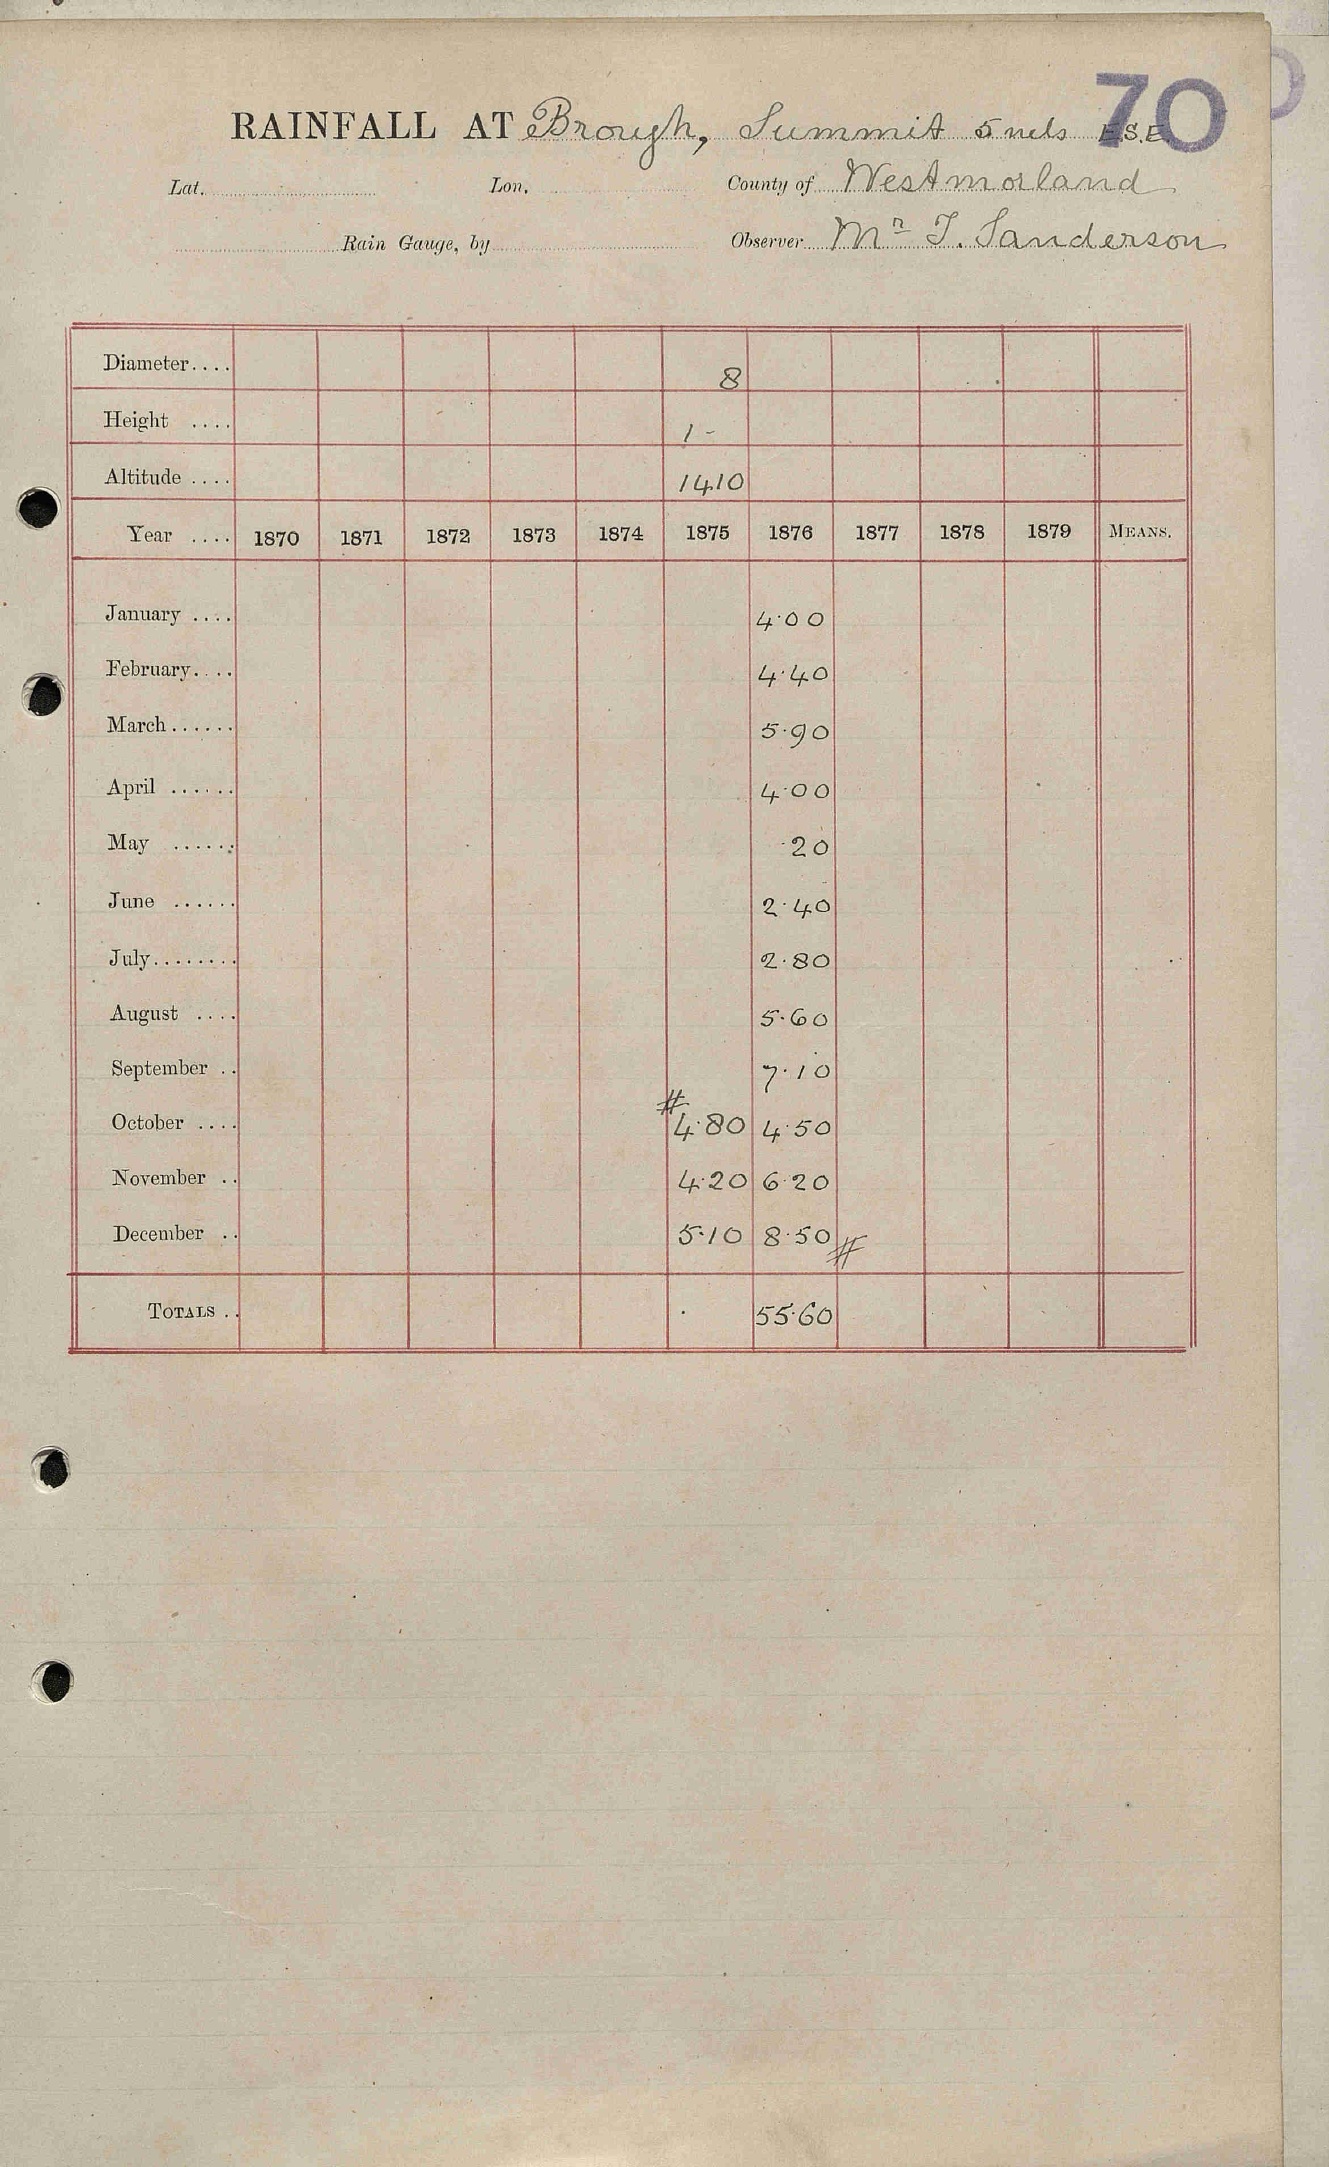 70
RAINFALL AT Brough, Summit 5 mls E.S.E.
Lat. Lon. County of Westmorland
Rain Gauge, by Observer Mr T. Sanderson
Diameter.... 8
Height .... 1 -
Altitude .... 1410
Year .... 1870 1871 1872 1873 1874 1875 1876 1877 1878 1879 MEANS.
January .... 4.00
February.... 4.40
March...... 5.90
April ...... 4.00
May ...... .20
June ...... 2.40
July........ 2.80
August .... 5.60
September .. 7.10
October .... # 4.80 4.50
November .. 4.20 6.20
December .. 5.10 8.50 #
TOTALS .. 55.60